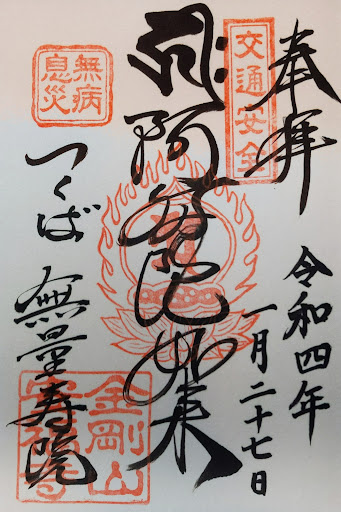 奉拝
交通安全
令和四年
一月二十七日
阿弥陀如来
無病
息災
つくば
無量寿院
金剛山